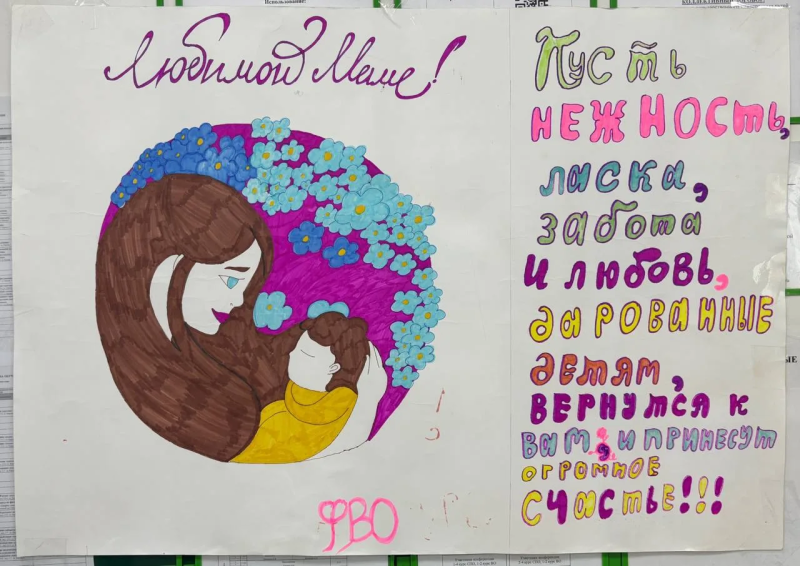 Любимой Маме!
Пусть
нежность,
ласка,
забота
и любовь,
дарованные
детям,
вернутся к
вам, и принесут
огромное
счастье!!!
ФВО